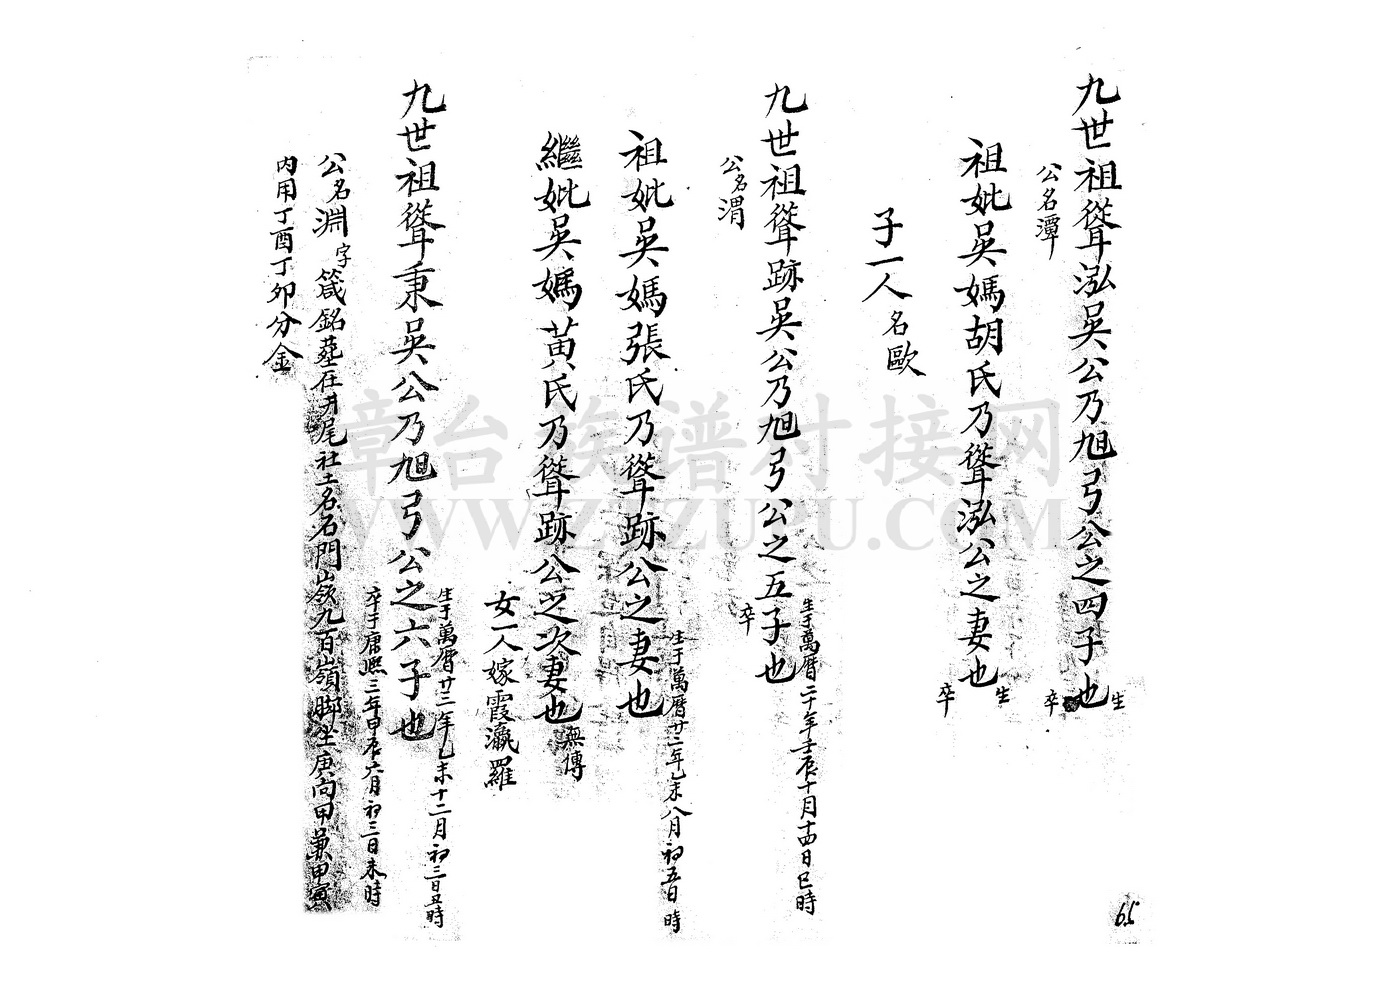 九世祖聳泓吳公乃旭弓公之四子也
生
卒
公名潭
祖妣吳媽胡氏乃聳泓公之妻也
生
卒
子一人名歐
九世祖聳跡吳公乃旭弓公之五子也
生于萬曆二十年壬辰十月十四日巳時
卒
公名渭
祖妣吳媽張氏乃聳跡公之妻也
生于萬曆廿二年乙未八月初五日時
繼妣吳媽黃氏乃聳跡公之次妻也無傳
女一人嫁霞瀛羅
九世祖聳秉吳公乃旭弓公之六子也
生于萬曆廿二年乙未十二月初三日丑時
卒于康熙三年甲辰六月初三日未時
公名淵字箴銘葬在井尾社土名石門嶺九百嶺脚坐庚向甲兼申寅
内用丁酉丁卯分金
65
章台族谱对接网
WWW.ZTZUPU.COM